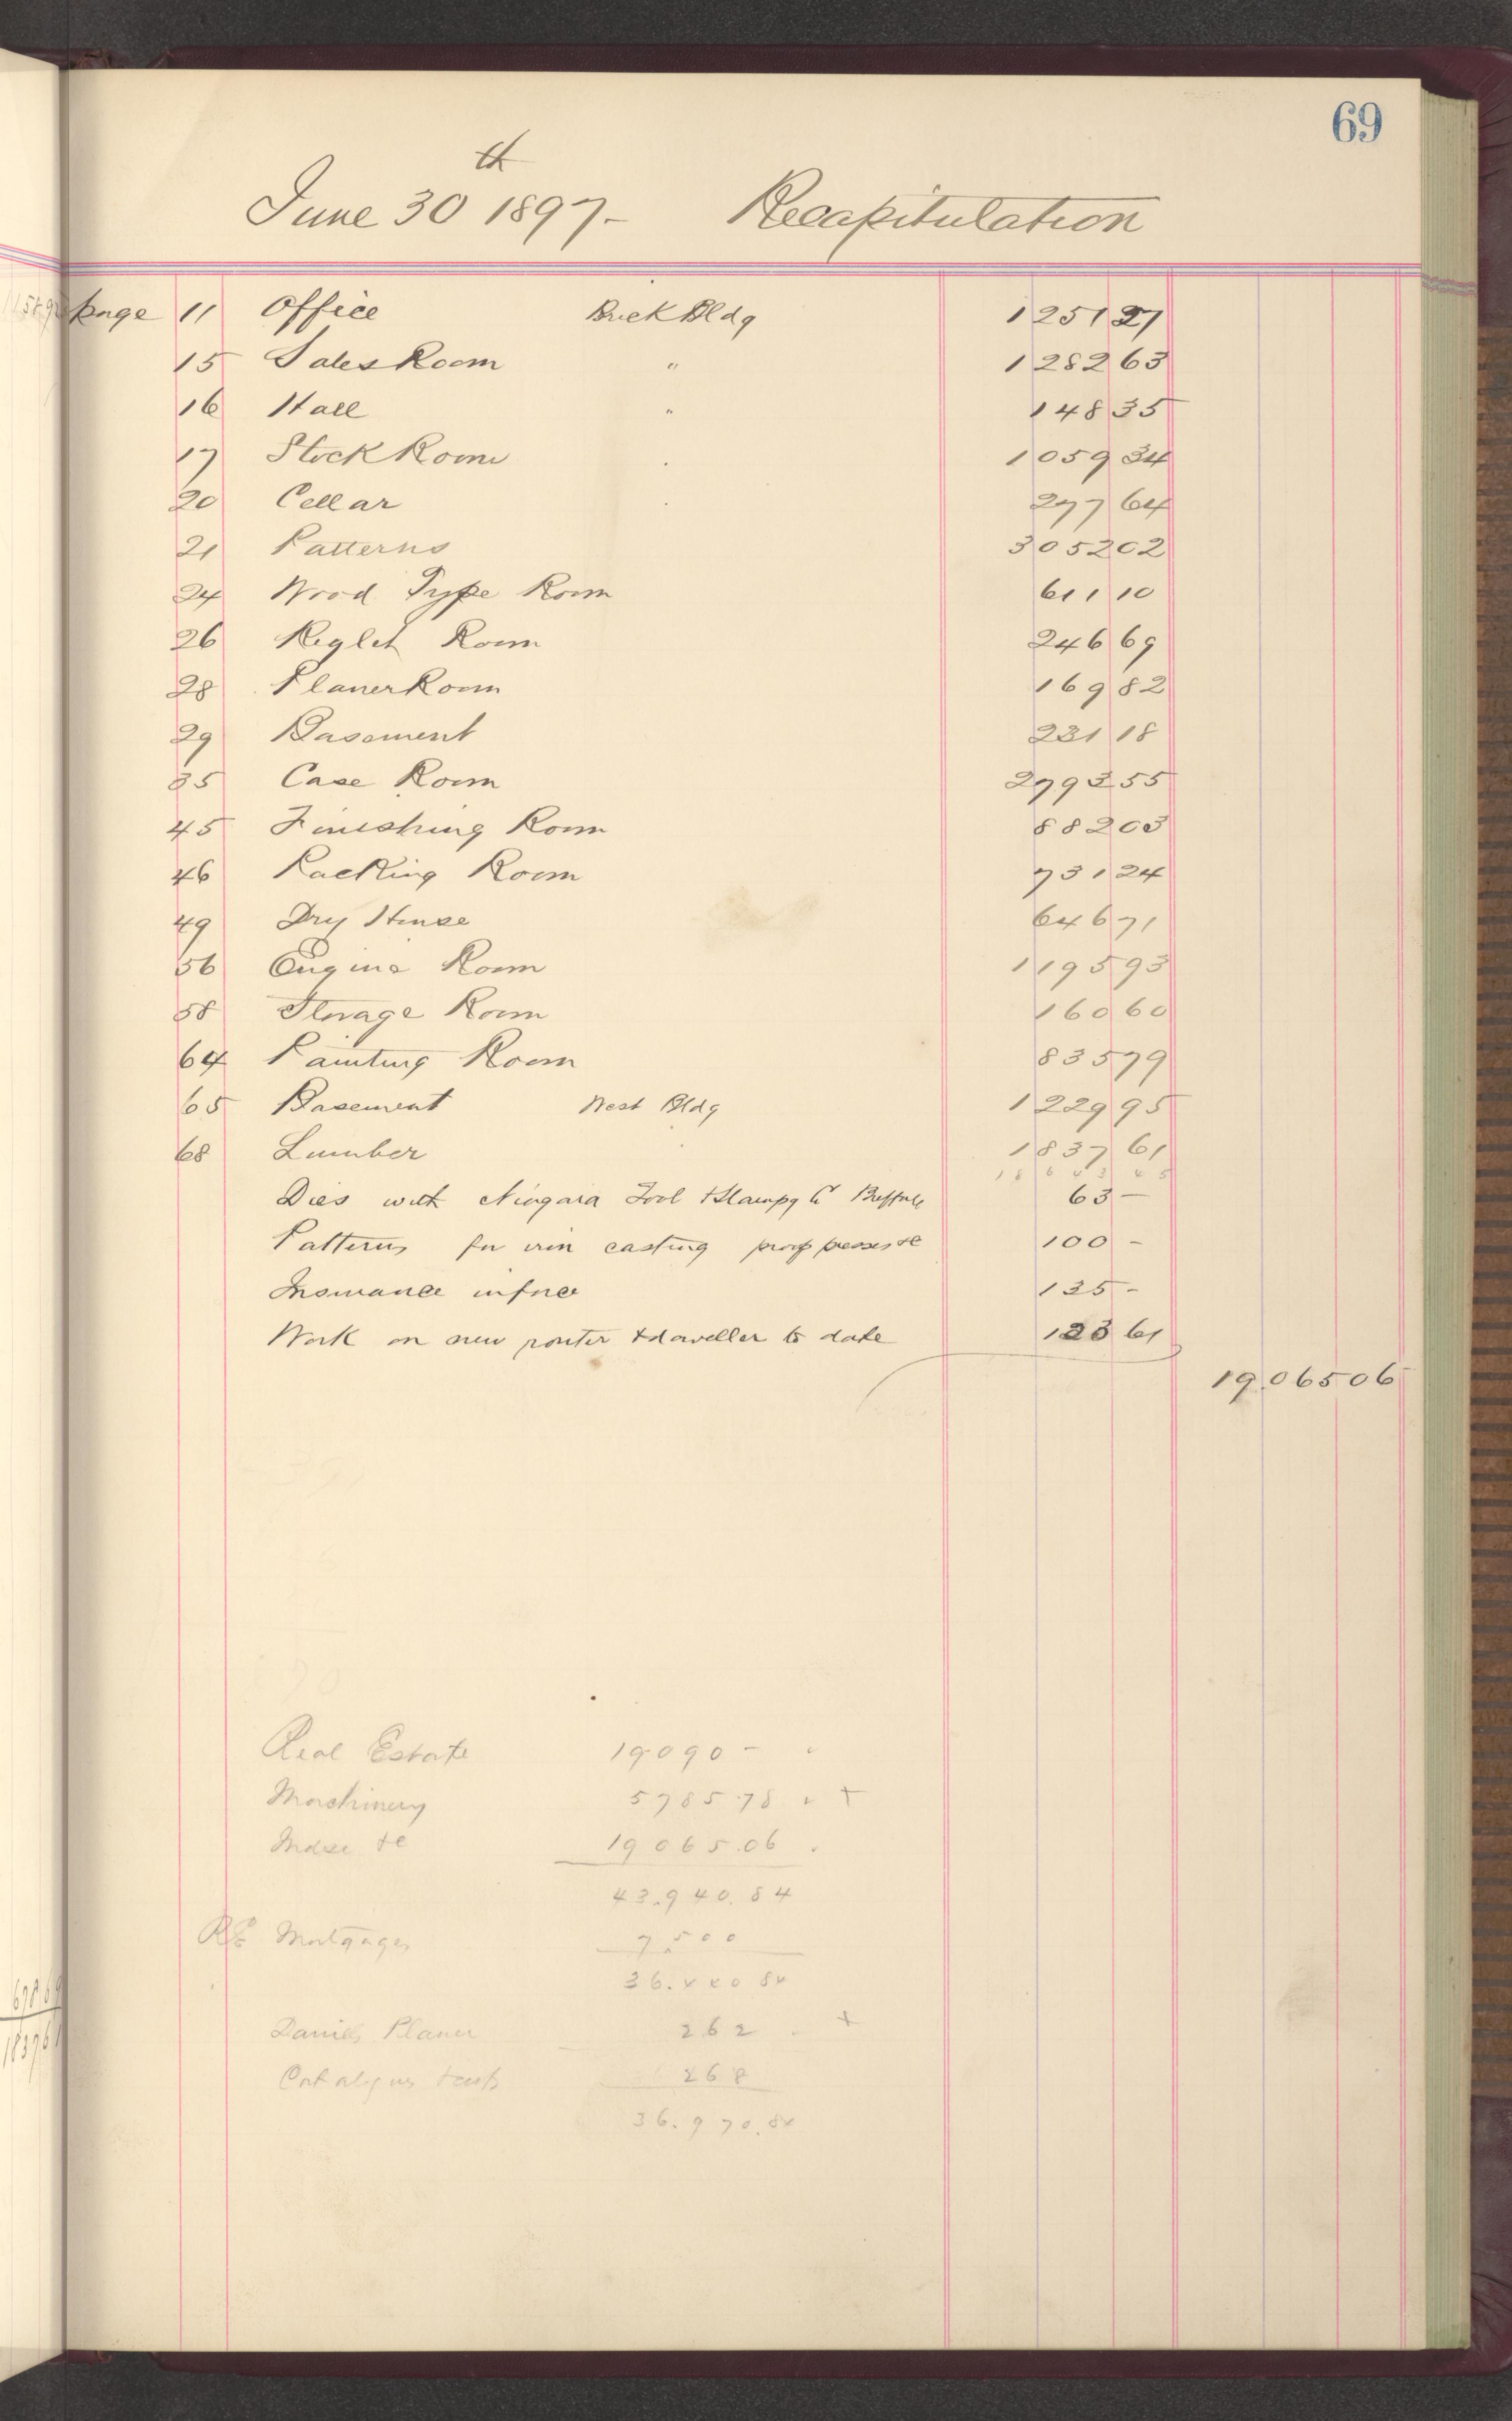 69
June 30th 1897- Recapitulation
page 11 Office Brick Bldg 1251 27
15 Sales Room " 1282 63
16 Hall " 148 35
17 Stock Room . 1059 34
20 Cellar . 277 64
21 Patterns 3052 02
24 Wood Type Room 611 10
26 Reglet Room 246 69
28 Planer Room 169 82
29 Basement 231 18
35 Case Room 2793 55
45 Finishing Room 882 03
46 Packing Room 731 24
49 Dry House 646 71
56 Engine Room 1195 93
58 Storage Room 160 60
64 Painting Room 835 79
65 Basement West Bldg 1229 95
68 Lumber 1837 61
18643 45
Dies with Niagara Tool & Stampg Co Buffalo 63 -
Patterns for iron casting proof presses &c 100 -
Insurance inforce 135 -
Work on new router & doweller to date 123 61
19.065 06
Real Estate 19090 -
Machinery 5785.78 +
Mdse &c 19065.06
43.940.84
RE Mortgages 7.500
36.440 84
Daniels Planer 262 +
Catalogues 268
36.970.84
67869
183761